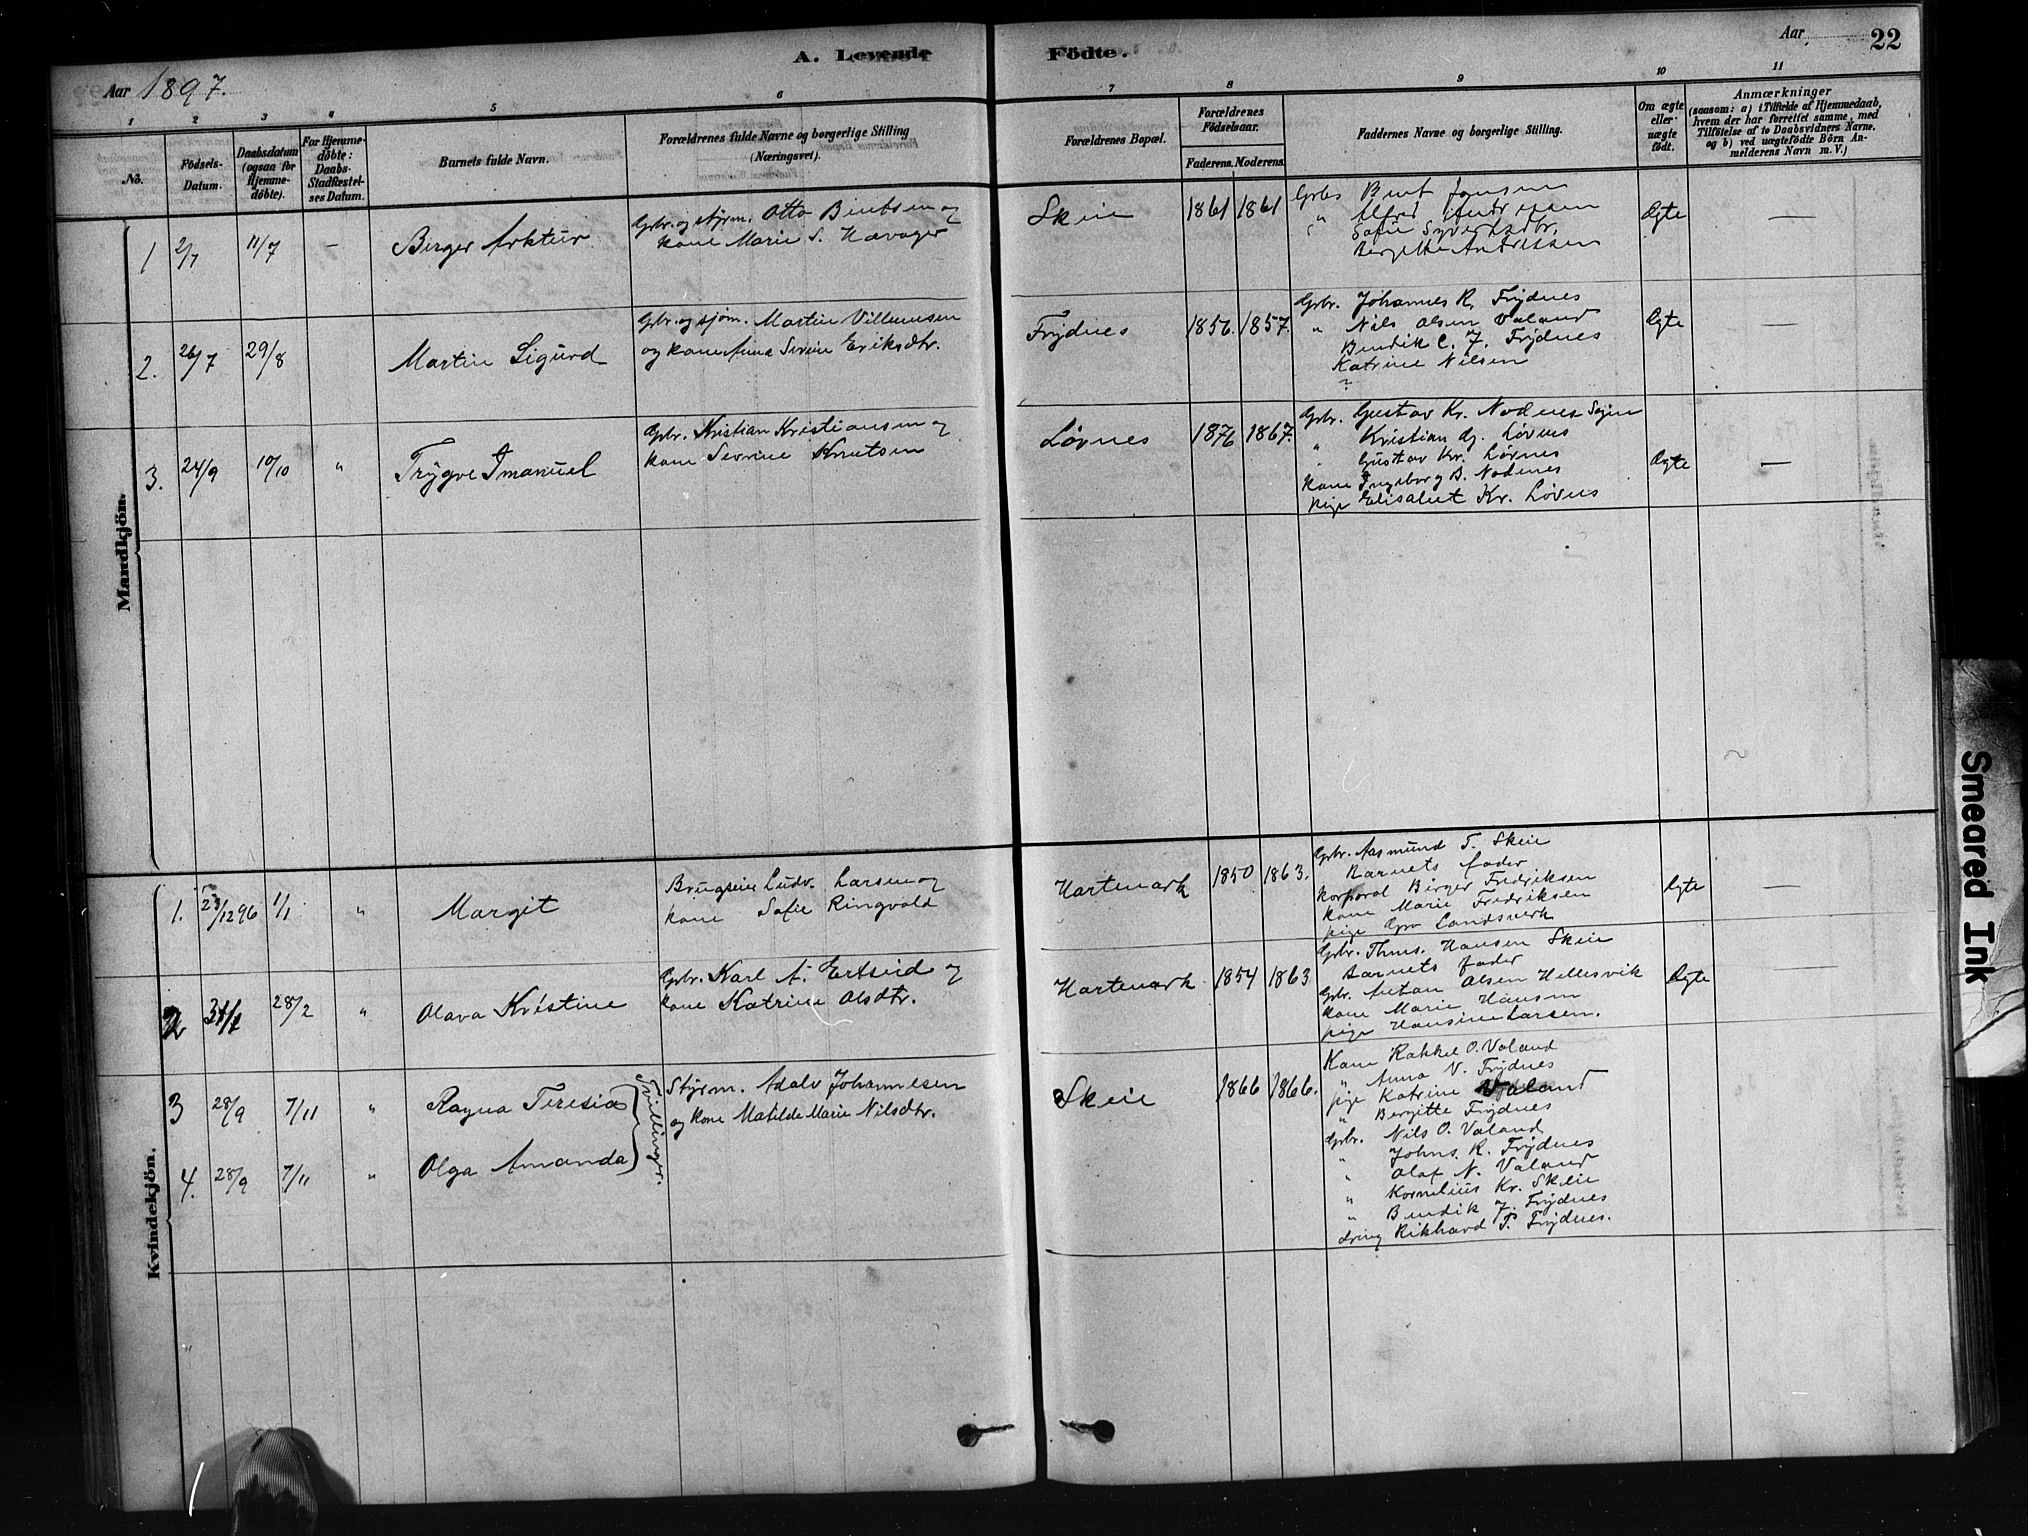 A. Levende Födte.
Aar 22
Aar 1897.
1 2 3 4 5 6 7 8 9 10 11
No.
Födsels-Datum.
Daabsdatum (ogsaa for Hjemmedöbte).
For Hjemmedöbte: Daabs-Stadfæstelses Datum.
Barnets fulde Navn.
Forældrenes fulde Navne og borgerlige Stilling (Næringsvei).
Forældrenes Bopæl.
Forældrenes Födselsaar.
Faderens. Moderens.
Faddernes Navne og borgerlige Stilling.
Om ægte eller uægte födt.
Anmærkninger (saasom: a) i Tilfælde af Hjemmedaab, hvem der har forrettet samme, med Tilföielse af to Daabsvidners Navne. og b) ved uægtefödte Börn Anmelderens Navn m. V.)
Mandkjön.
1 2/7 11/7 – Berger Arktur
Gbr. og styrm. Otto Bentsen og
kone Marie S. Havåger
Skeie 1861 1861
Gbr. Bent Jansen
" Alfred Andresen
Sofie Syvertsdtr.
Bergitte Andresen
Ægte —
2. 26/7 29/8 Martin Sigurd
Gbr. og sjøm. Martin Villumsen
og kone Anna Serine Eriksdtr.
Frydnes 1856. 1857.
Gbr. Johannes R. Frydnes
" Nils Olsen Valand
Bendik C. J. Frydnes
Katrine Nilsen
?
Ægte —
3. 24/9 10/10 " Trygve Imanuel
Gbr. Kristian Kristiansen og
kone Sevrine Knutsen
Løvnes 1876 1867.
Gbr. Gustav Kr. Nodnes
" Kristian G. Løvnes
" Gustav Kr. Løvnes
kone Ingeborg B. Nodnes
pige Elisabet Kr. Løvnes
Ægte —
Kvindekjön.
1. 23/12 96 1/1 " Margit
Brugseier Ludv. Larsen og
kone Sofie Ringvold
Hartmark 1850 1863.
Gbr. Aasmund T. Skeie
Barnets fader
korporal Birger Fredriksen
kone Marie Fredriksen
pige Landsverk
Ægte —
2 31/1 28/2 " Olava Kristine
Gbr. Karl A. Ertseid og
kone Katrine Olsdtr.
Hartmark. 1854 1863
Gbr. Thms. Hansen Skeie
Barnets fader
Gbr. Anton Olsen Hellesvik
kone Marie Hansen
pige Hansine Larsen.
Ægte —
3 28/9 7/11 " Ragna Teresia
4. 28/9 7/11 " Olga Amanda
Tvillinger.
Styrm. Adolv Johannesen
og kone Matilde Marie Nilsdtr.
Skeie 1866 1866.
Kone Rakkel O. Valand
" Anna V. Frydnes
pige Katrine Valand
" Bergitte Frydnes
Gbr. Nils O. Valand
" Johns. R. Frydnes
" Olaf N. Valand
" Kornelius Kr. Skeie
" Bendik J. Frydnes
dreng Rikhard T. Frydnes.
Smeared Ink